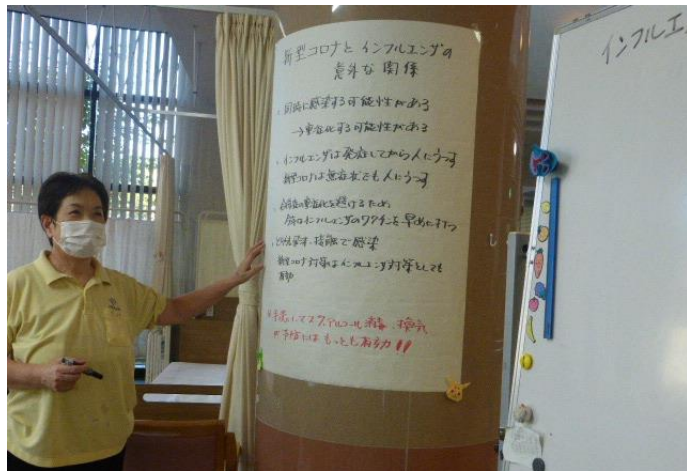 新型コロナとインフルエンザの
意外な関係
・同時に感染する可能性がある
→重症化する可能性がある
・インフルエンザは発症してから人にうつす
新型コロナは無症状でも人にうつす
の重症化を避けるため
インフルエンザのワクチンを早めにうつ
接触で感染
新型コロナ対策はインフルエンザ対策としても
有効
手洗い マスク アルコール消毒 換気
が予防にはもっとも有効!!
インフルエン